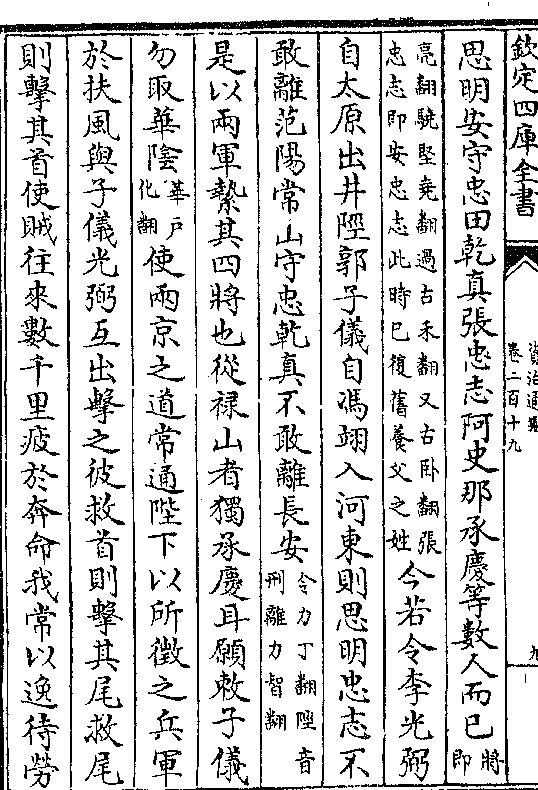 欽定四庫全書
資治通鑑
卷二百十九
九
思明安守忠田乾真張忠志阿史那承慶等數人而已將即
亮翻驍堅堯翻過古禾翻又古卧翻張
忠志即安忠志此時已復舊養父之姓
今若令李光弼
自太原出井陘郭子儀自馮翊入河東則思明忠志不
敢離范陽常山守忠乾真不敢離長安令力丁翻陘音刑離力智翻
是以兩軍縶其四將也從禄山者獨承慶耳願敕子儀
勿取華陰華戶化翻使兩京之道常通陛下以所徵之兵軍
於扶風與子儀光弼互出擊之彼救首則擊其尾救尾
則擊其首使賊往來數千里疲於奔命我常以逸待勞